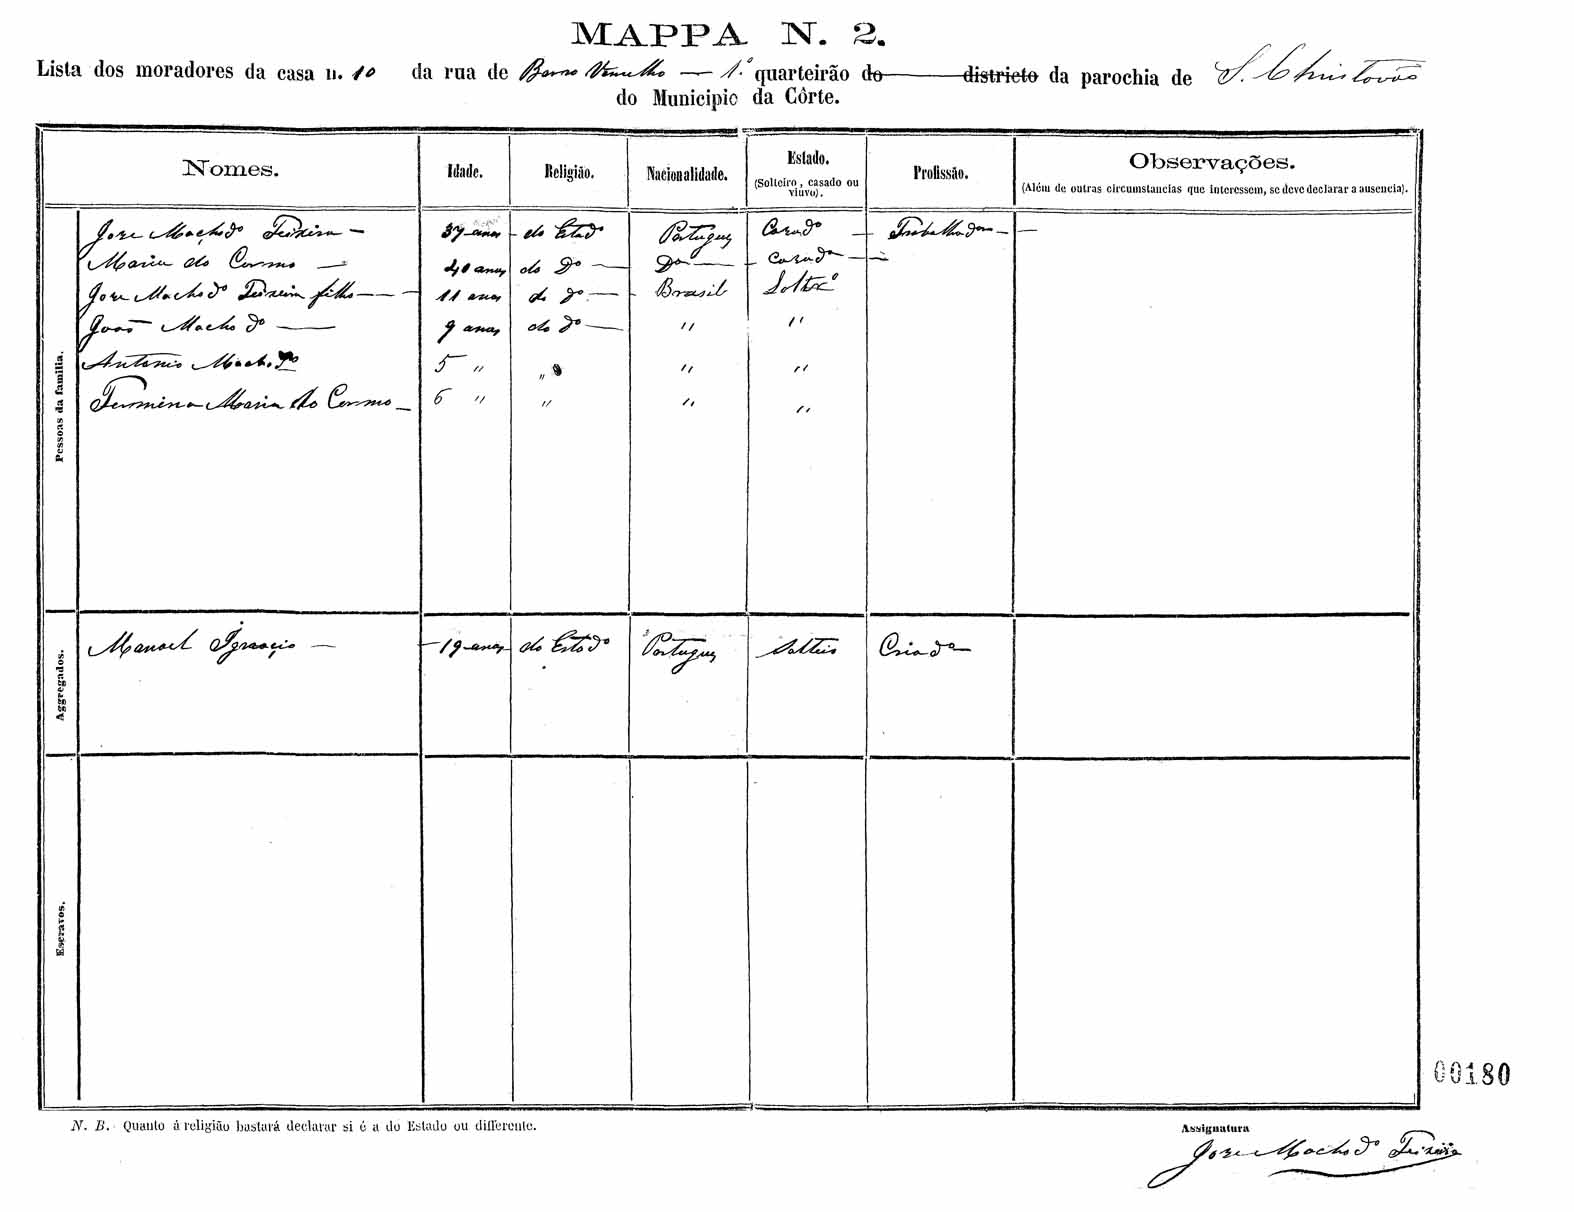 MAPPA N. 2.
Lista dos moradores da casa n. 10 da rua de Barro Vermelho — 1.º quarteirão do districto da parochia de S. Christovão
do Municipio da Côrte.
Nomes. Idade. Religião. Nacionalidade. Estado. (Solteiro, casado ou viuvo). Profissão. Observações. (Além de outras circumstancias que interessem, se deve declarar a ausencia).
Pessoas da familia.
Jose Machado Teixeira — 37 annos — do Estado Portuguez Casado — Trabalhador — —
Maria do Carmo — 40 annos do Dº — Dº — Casada — —
Jose Machado Teixeira filho — — 11 annos do dº — Brasil Soltrº
João Machado — 9 annos do dº — " "
Antonio Machado 5 " " " "
Firmina Maria do Carmo — 6 " " " "
Aggregados.
Manoel Ignacio — — 19 annos do Estado Portuguez Solteiro Criado
Escravos.
00180
N. B. Quanto á religião bastará declarar si é a do Estado ou differente.
Assignatura
Jose Machado Teixeira